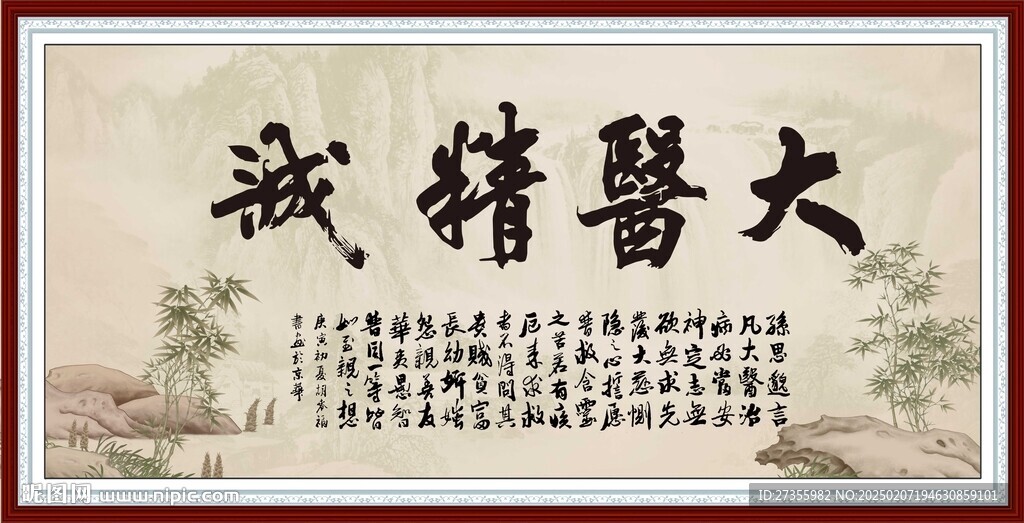 大醫精誠
孫思邈言
凡大醫治
病必當安
神定志無
欲無求先
發大慈惻
隱之心誓愿
普救含靈
之苦若有疾
厄来求救
者不得問其
貴賤貧富
長幼妍媸
怨親善友
華夷愚智
普同一等皆
如至親之想
庚寅初夏胡
書画於京華
昵图网 www.nipic.com
ID:27355982 NO:20250207194630859101